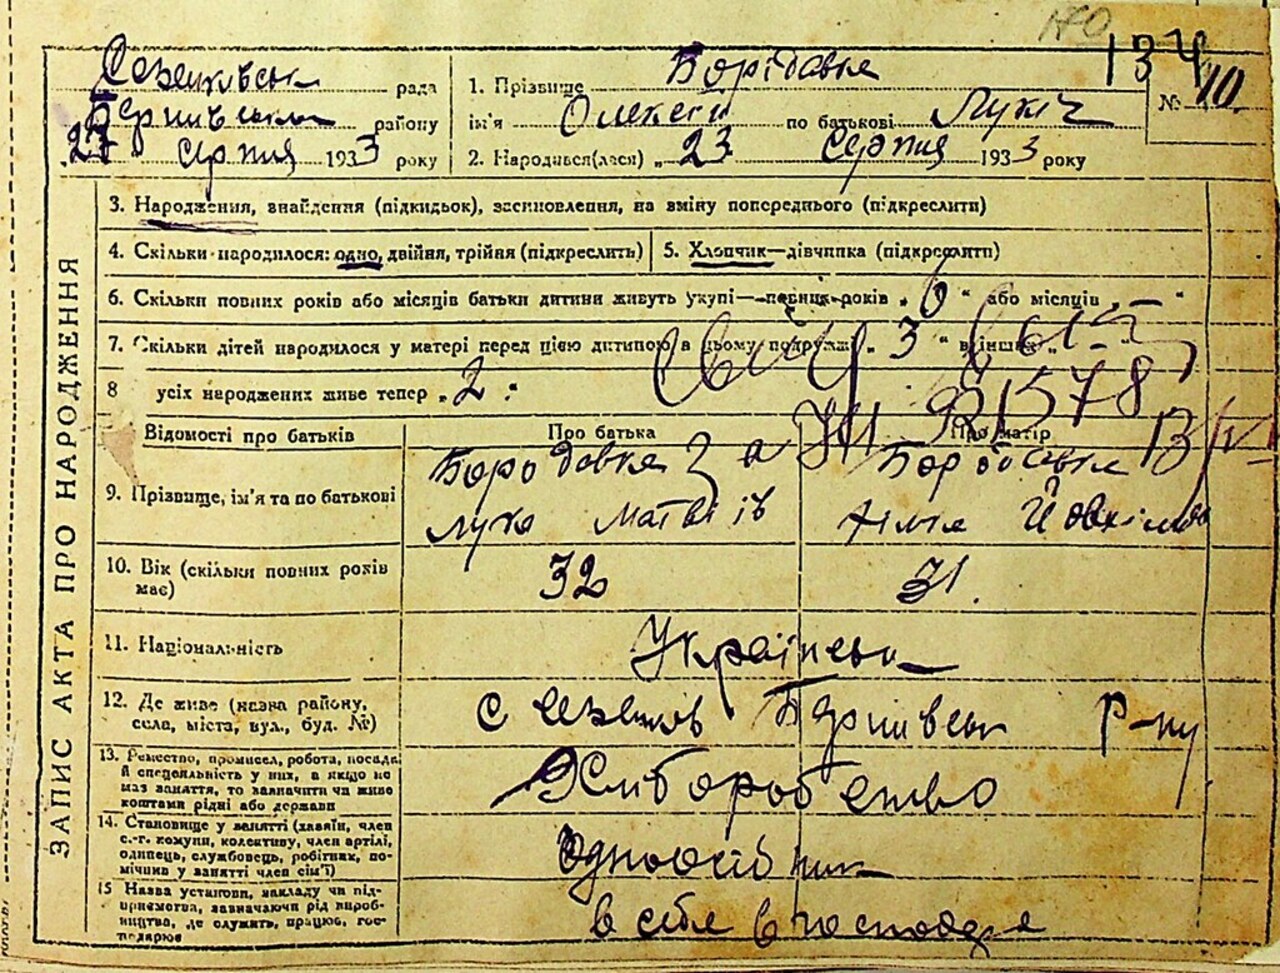 170
134
рада
району
"27" серпня 1933 року
1. Прізвище
ім'я Олексій по батькові Лукіч
2. Народився(лася) "23 серпня 1933 року
№ 10.
ЗАПИС АКТА ПРО НАРОДЖЕННЯ
3. Народження, знайдення (підкидьок), засиновлення, на зміну попереднього (підкреслити)
4. Скільки народилося: одно, двійня, трійня (підкреслить)
5. Хлопчик—дівчинка (підкреслити)
6. Скільки повних років або місяців батьки дитини живуть укупі— повних років „ 6 “ або місяців „ — “
7. Скільки дітей народилося у матері перед цією дитиною в цьому подружжі „ 3 “ в інших „
8 усіх народжених живе тепер „ 2 “
Відомості про батьків
Про батька
Про матір
9. Прізвище, ім'я та по батькові
Бородавка
Лука Матвіїв
10. Вік (скільки повних років
має)
32
31.
11. Національність
Українські
12. Де живе (назва району,
села, міста, вул., буд. №)
с р-ну
13. Ремество, промисел, робота, посада
й спеціяльність у них, а якщо не
має заняття, то зазначити чи живе
коштами рідні або держави
Хліборобство
14. Становище у занятті (хазяїн, член
с.-г. комуни, колективу, член артілі,
одинець, службовець, робітник, по-
мічник у занятті член сім'ї)
Одноосібник
15 Назва установи, закладу чи під-
приємства, зазначаючи рід вироб-
ництва, де служить, працює, гос-
подарює
в себе в господар